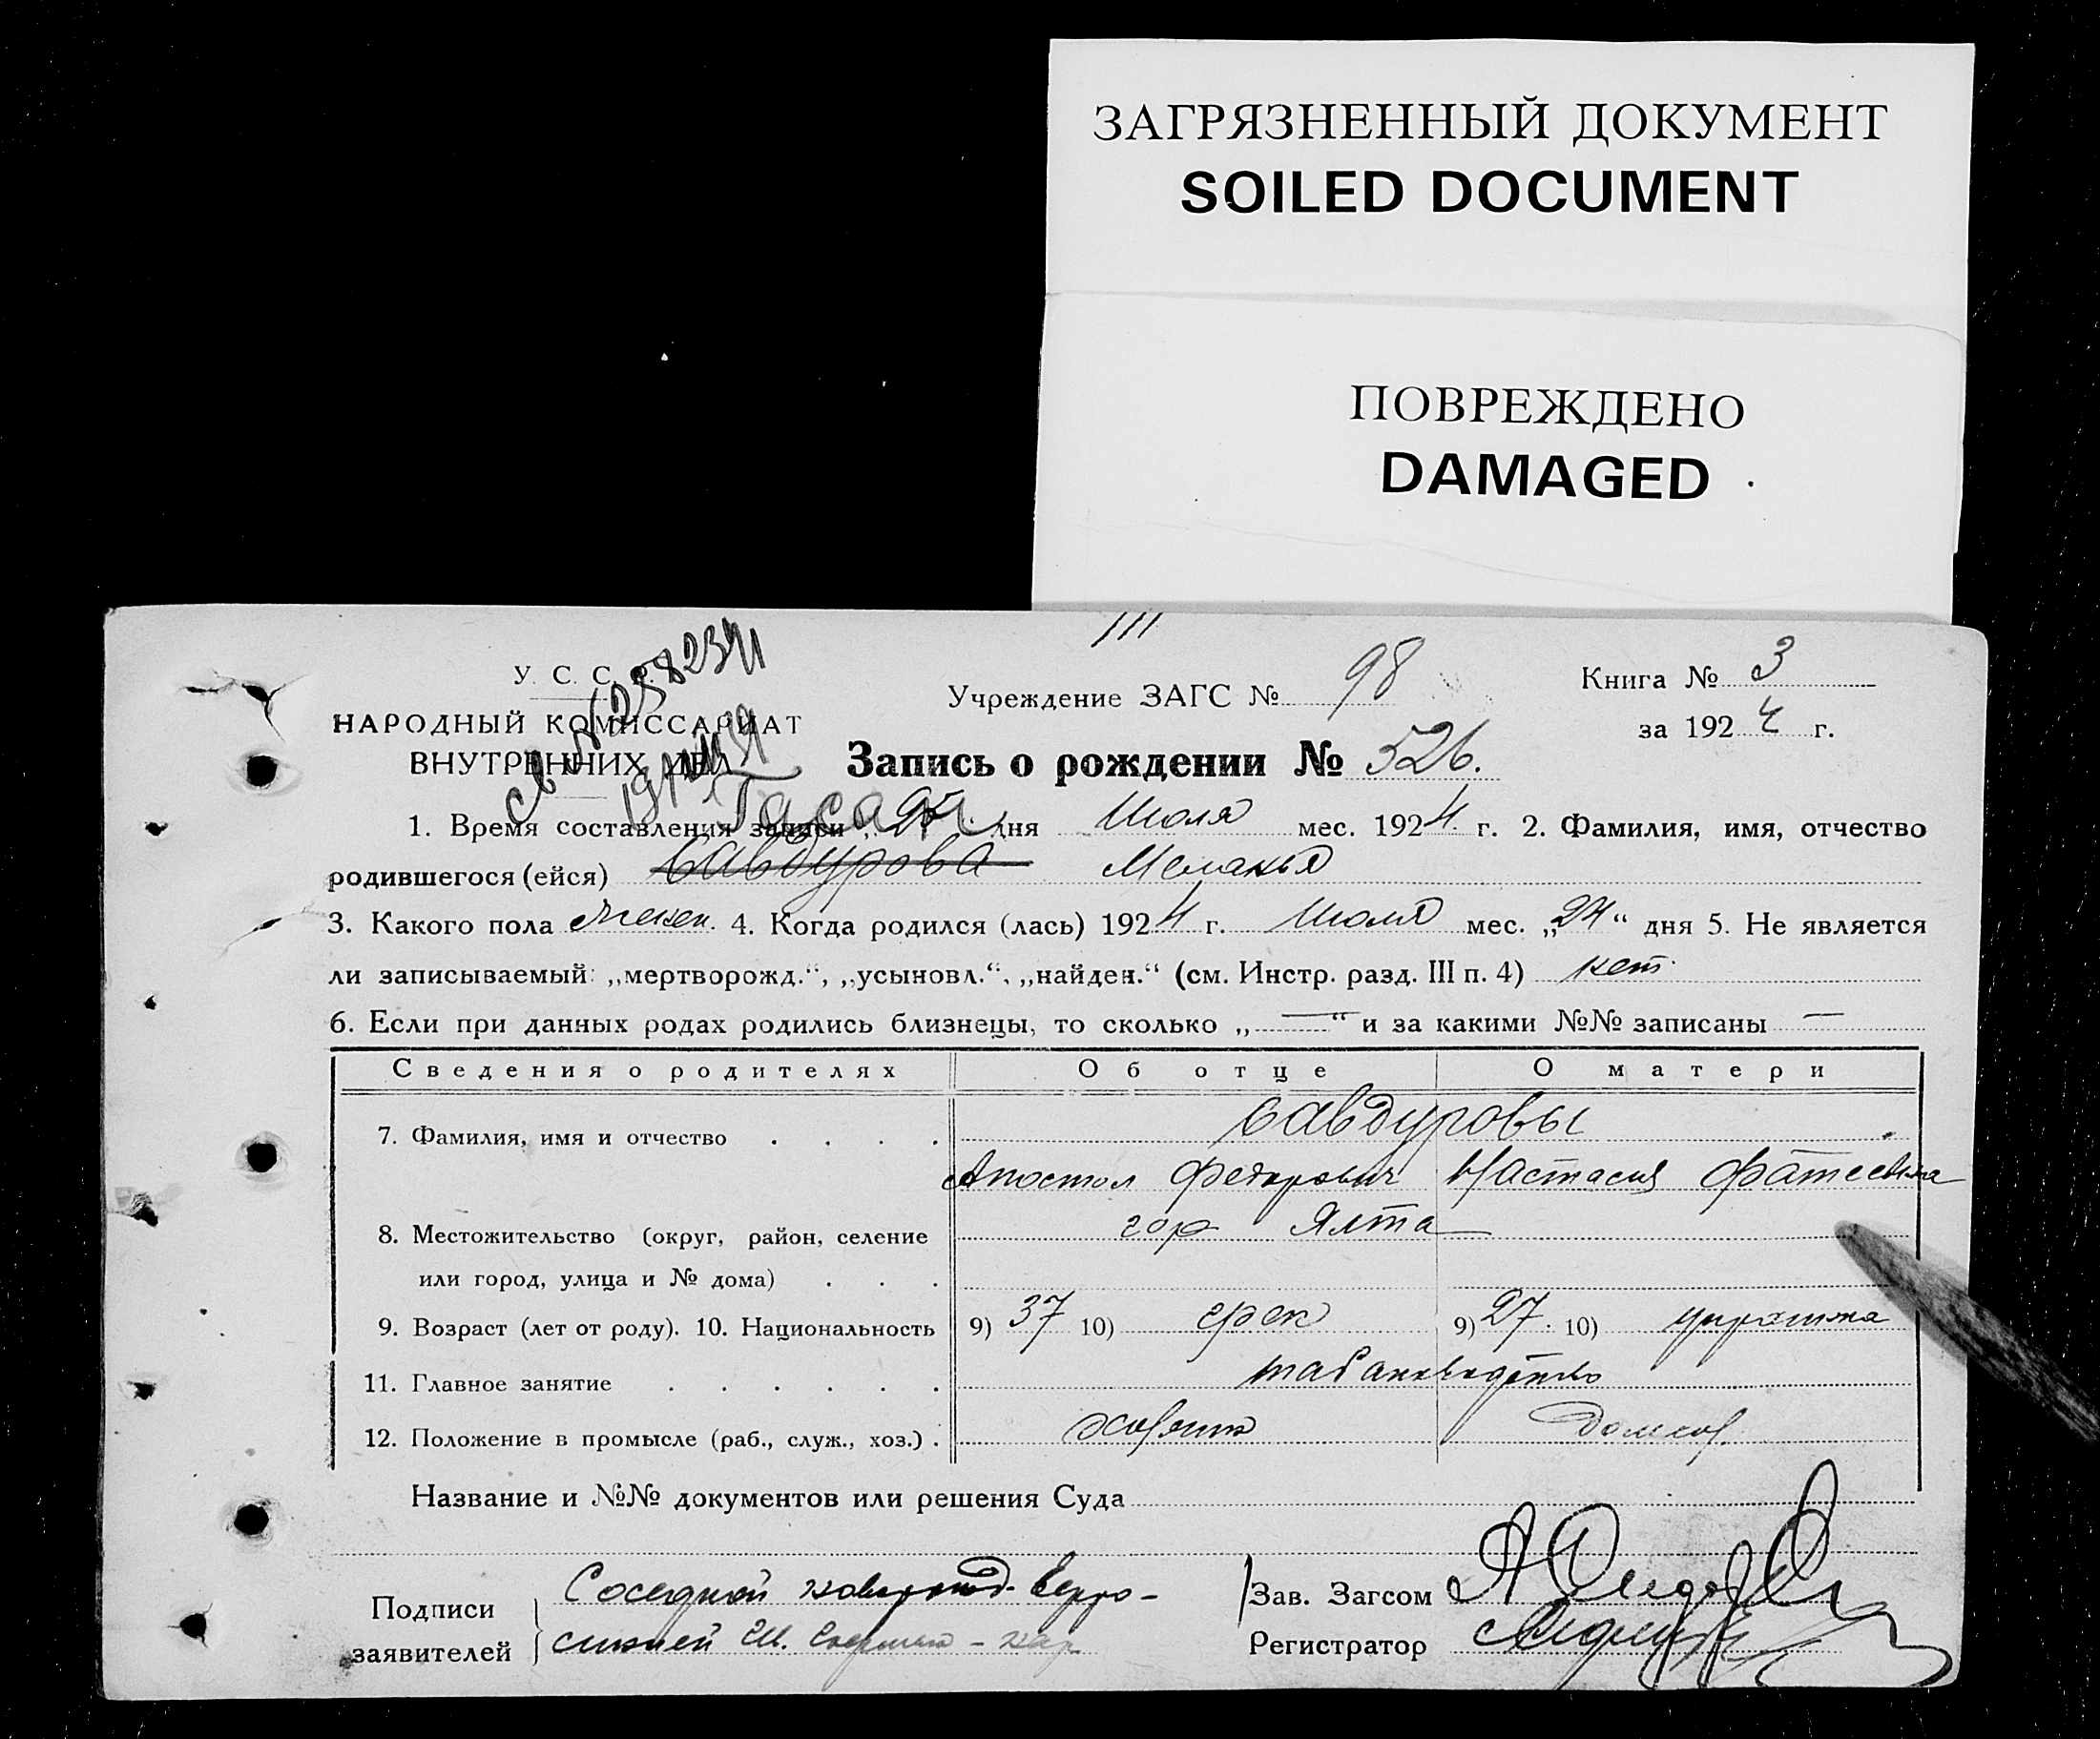 ЗАГРЯЗНЕННЫЙ ДОКУМЕНТ
SOILED DOCUMENT
ПОВРЕЖДЕНО
DAMAGED
У. С. С. Р.
НАРОДНЫЙ КОМИССАРИАТ
ВНУТРЕННИХ ДЕЛ
Учреждение ЗАГС № 98
Книга № 3
за 1924 г.
Запись о рождении № 526.
1. Время составления записи „25“ дня Июля мес. 1924 г. 2. Фамилия, имя, отчество
родившегося (ейся) Савдурова Меланья
3. Какого пола женск. 4. Когда родился (лась) 1924 г. Июля мес. „24“ дня 5. Не является
ли записываемый: „мертворожд.“, „усыновл.“, „найден.“ (см. Инстр. разд. III п. 4) нет
6. Если при данных родах родились близнецы, то сколько „—“ и за какими №№ записаны —
Сведения о родителях Об отце О матери
Савдуровы
7. Фамилия, имя и отчество
Апостол Федорович Настасия Фатеевна
8. Местожительство (округ, район, селение гор Ялта
или город, улица и № дома)
9. Возраст (лет от роду). 10. Национальность 9) 37 10) грек 9) 27. 10)
11. Главное занятие
12. Положение в промысле (раб., служ., хоз.) хозяин домхоз.
Название и №№ документов или решения Суда
Подписи
заявителей
Зав. Загсом
Регистратор